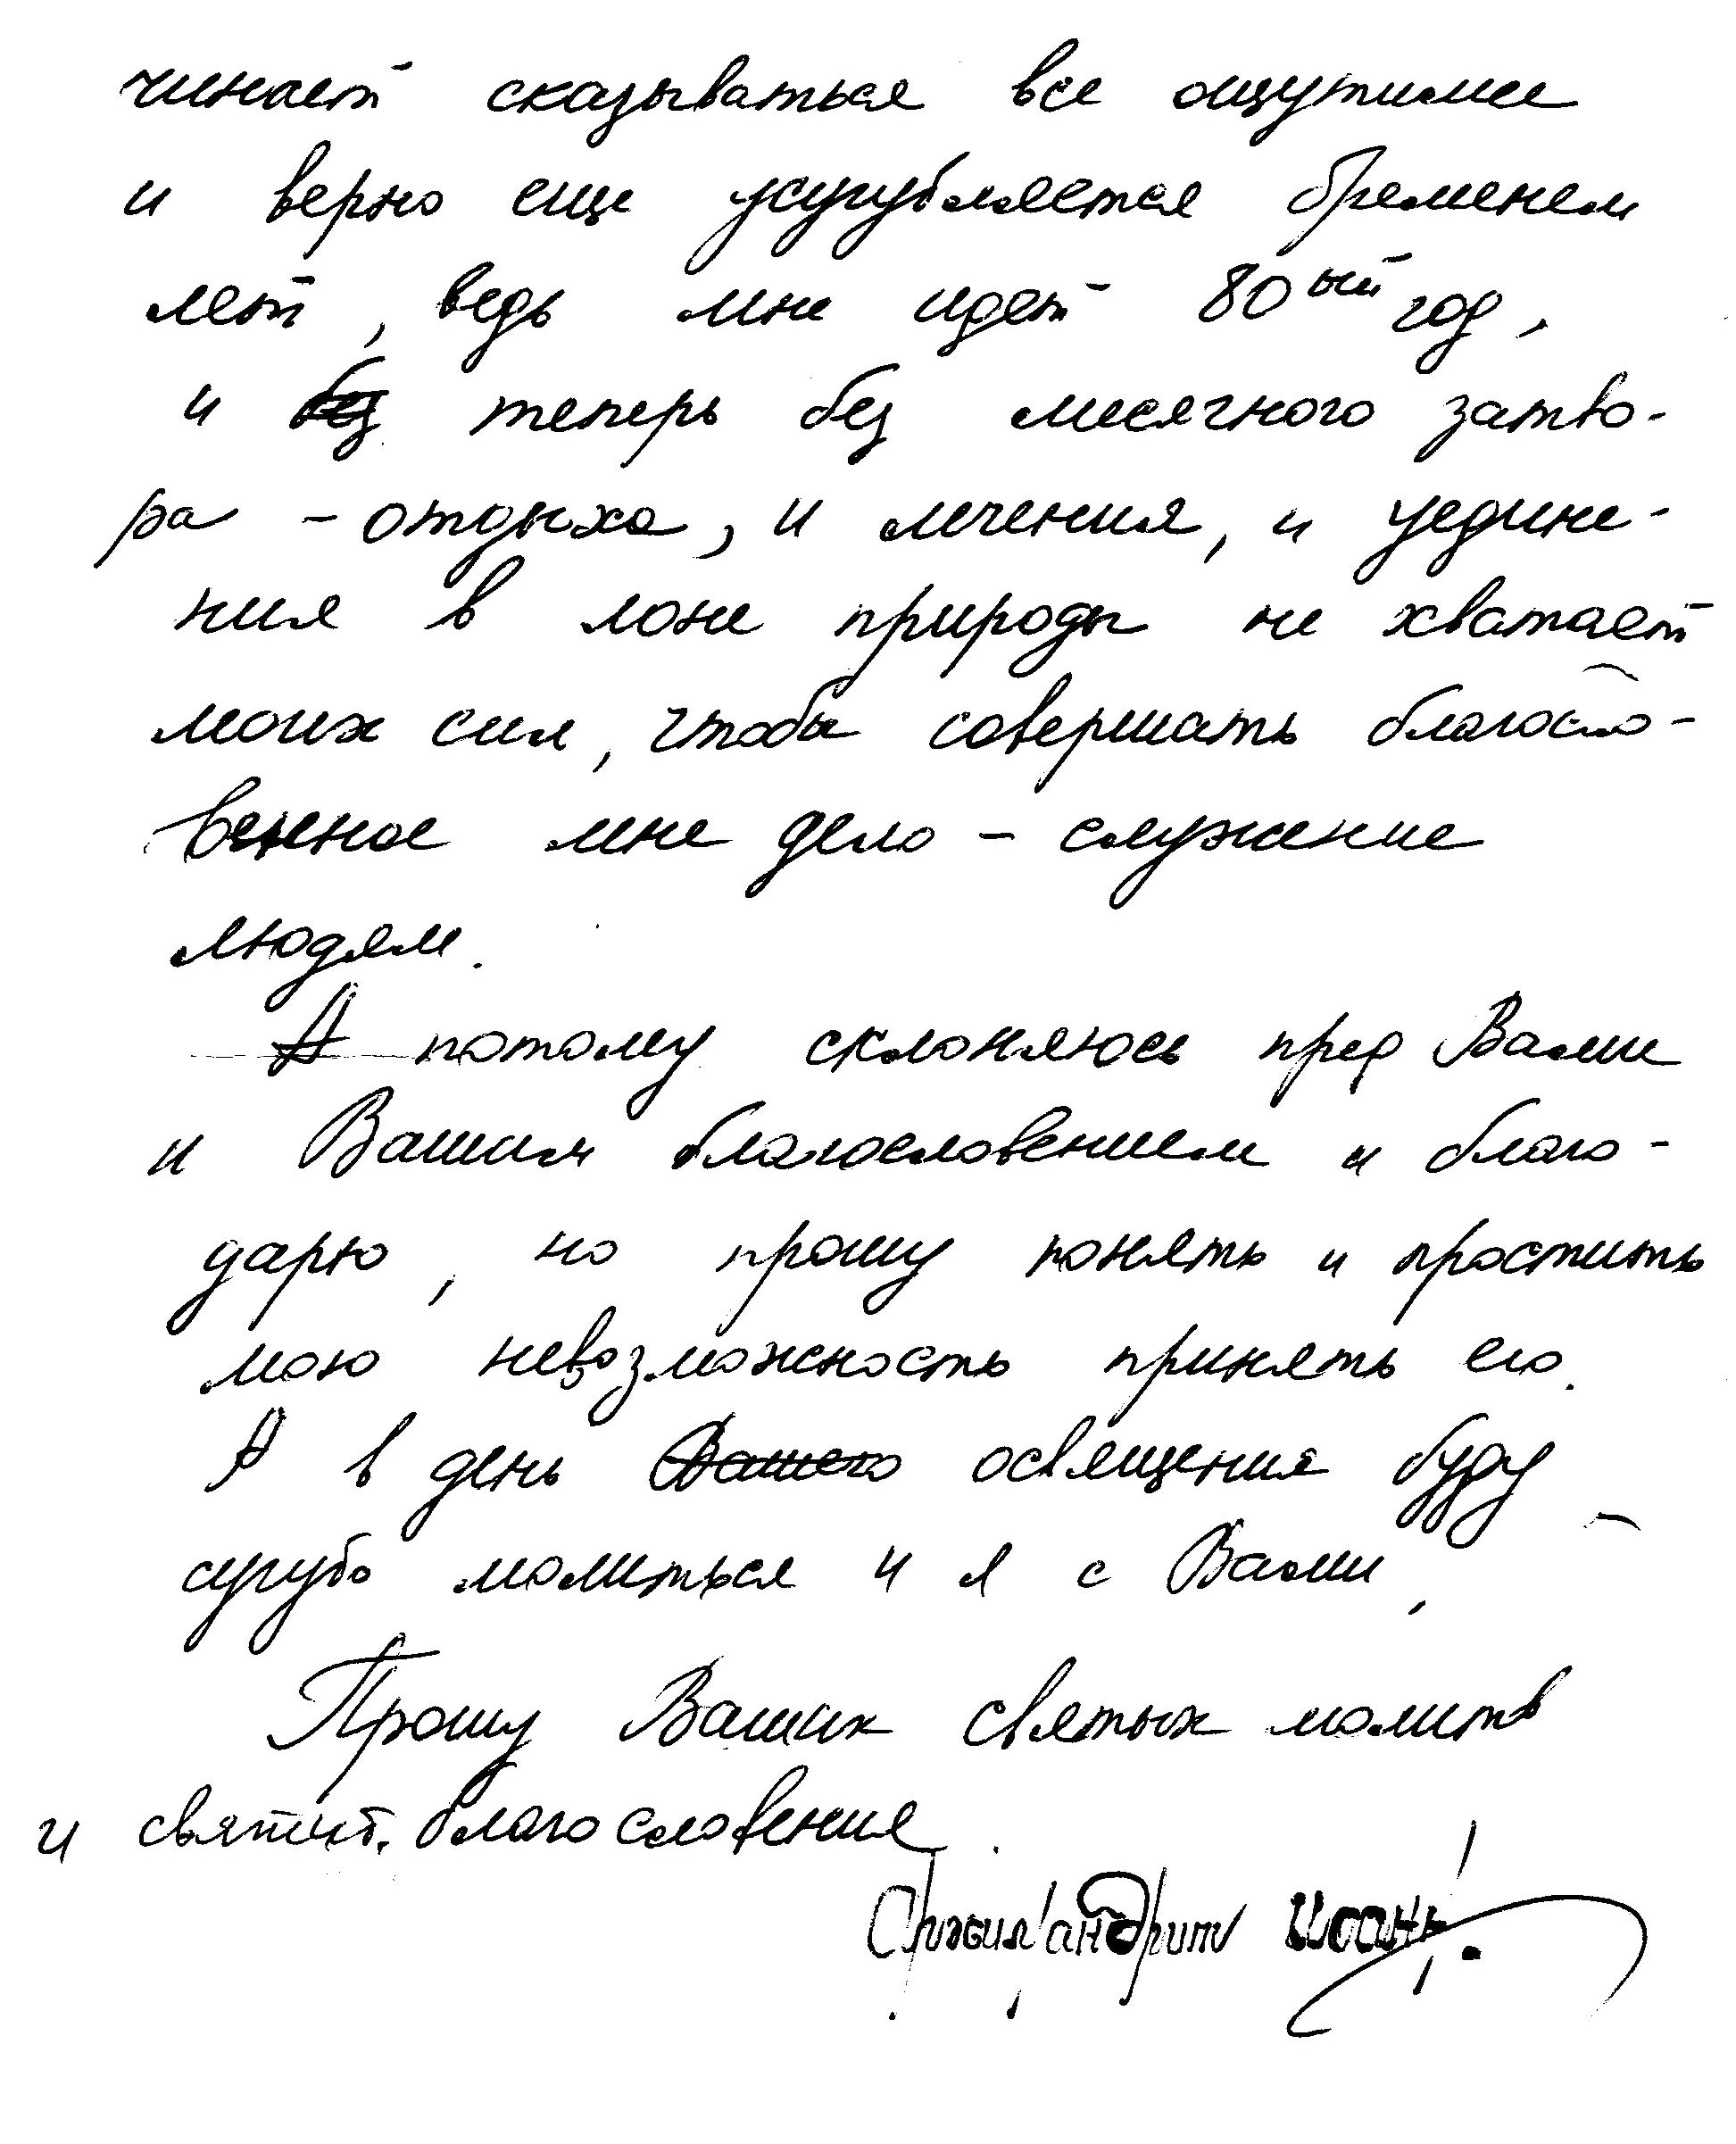 чинает сказываться все ощутимее
и верно еще усугубляется бременем
лет, ведь мне идет 80ый год,
и без теперь без месячного затво-
ра - отдыха, и лечения, и уедине-
ния в лоне природы не хватает
моих сил, чтобы совершать благосло-
венное мне дело - служение
людям.
А потому склоняюсь пред Вами
и Вашим благословением и благо-
дарю, но прошу понять и простить
мою невозможность принять его.
А в день Вашего освящения буду
сугубо молиться и я с Вами,
Прошу Ваших святых молитв
и святит. благословения
Архимандрит Иоанн.